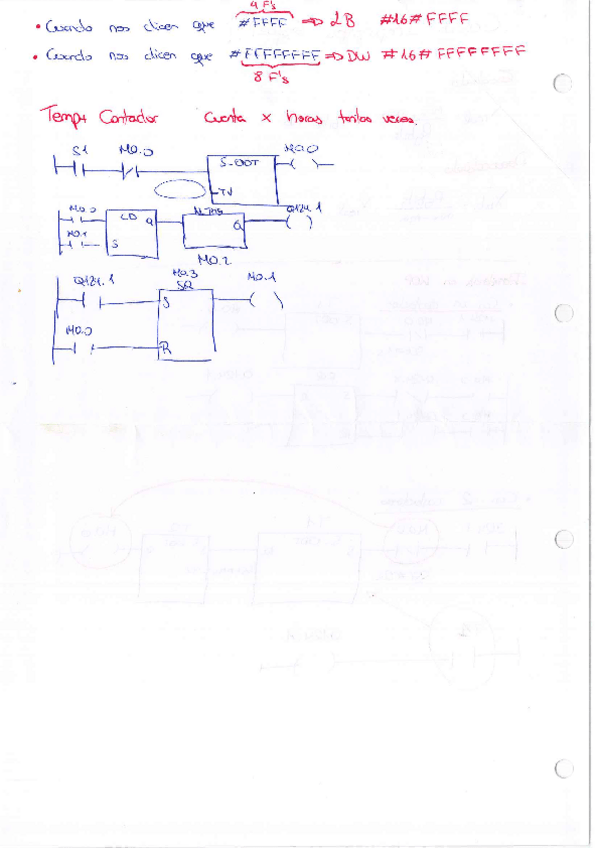 4 F's
• Cuando nos dicen que #FFFF => 2B #16#FFFF
• Cuando nos dicen que #FFFFFFFF => DW #16#FFFFFFFF
8 F's
Temp+ Contador Cuenta x horas tantas veces.
S1 M0.0 M0.0
S-ODT
TV
M0.0 CD Q Q124.1
M0.1 S Q
M0.2
Q124.1 M0.3 M0.1
SR
S
M0.0
R